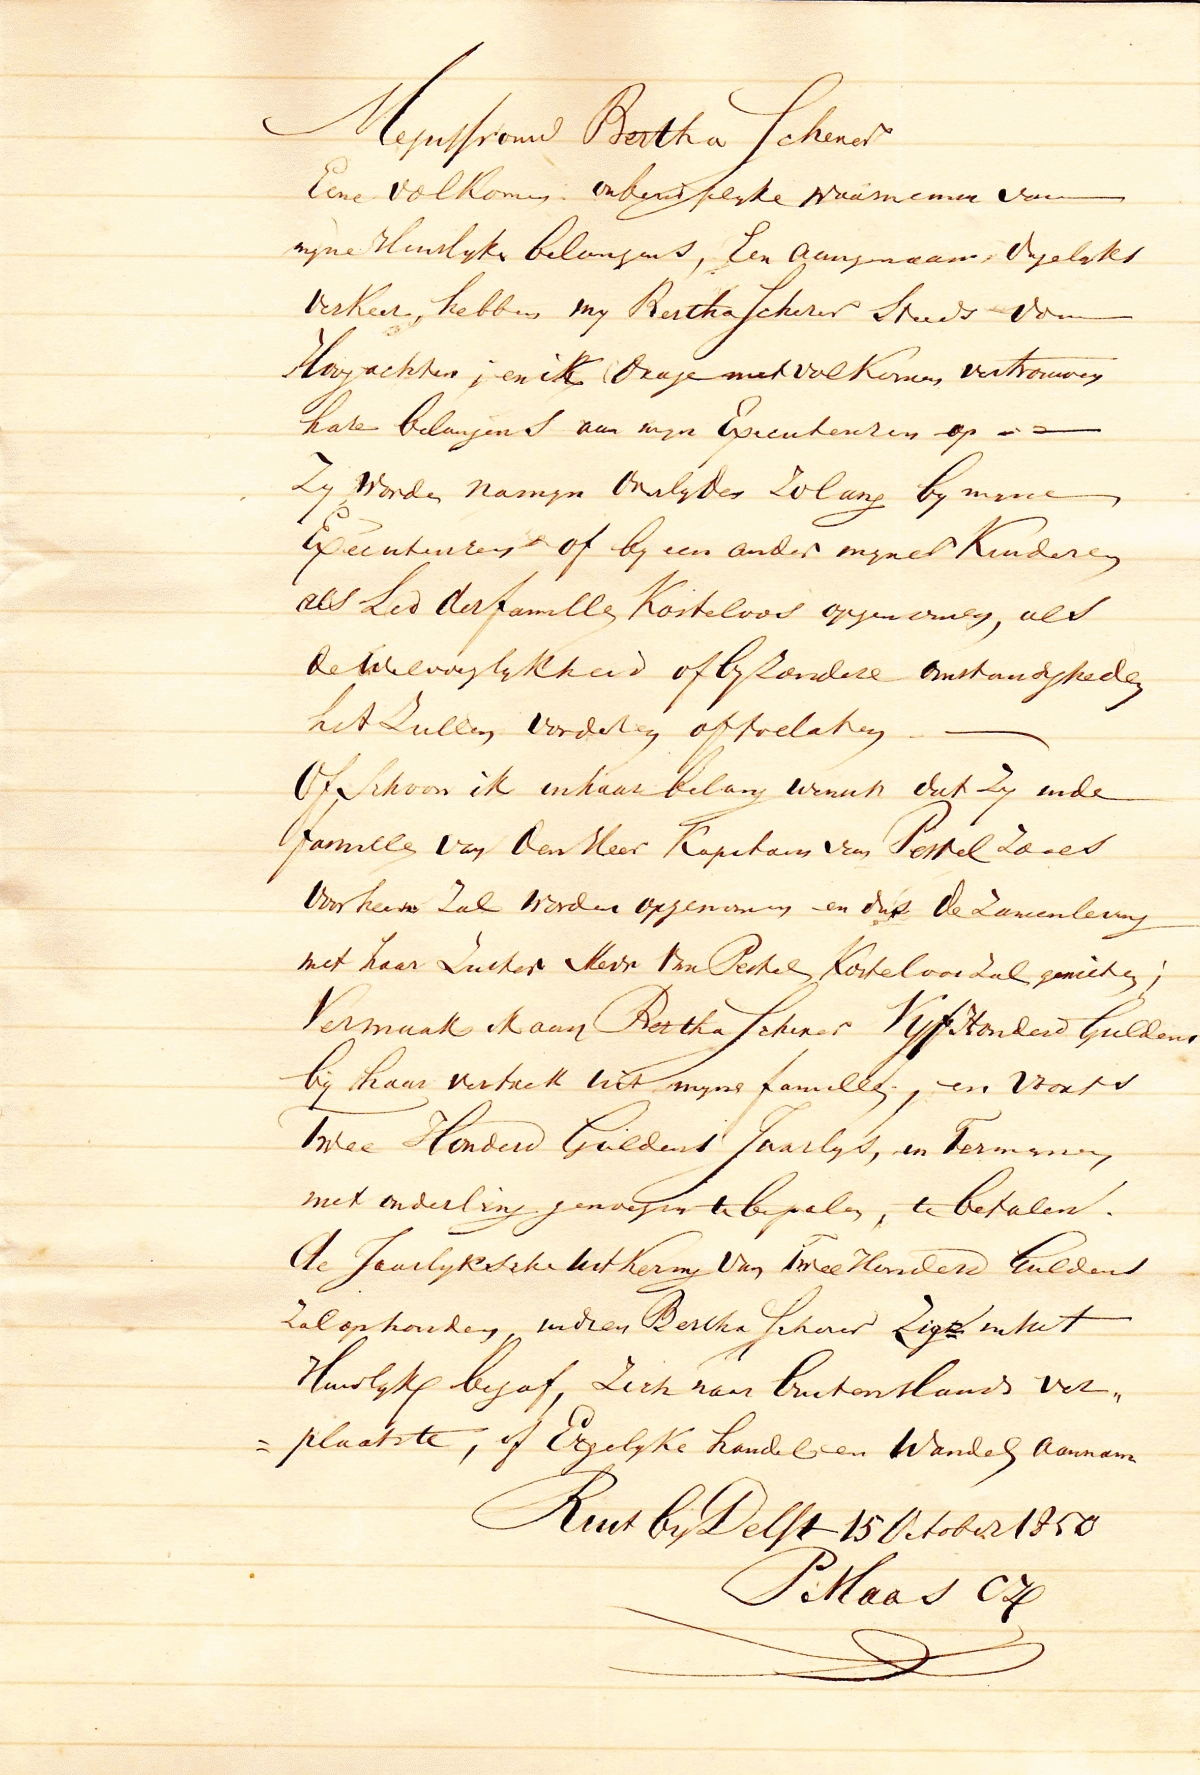 Mejuffrouw Bertha Scherer
Eene volkomen onberispelyke waarneemer van
myne Huislyke belangens, Een aangenaam dagelyks
verkeer, hebben my Bertha Scherer steeds doen
Hoogachten; en ik drage met volkomen vertrouwen
hare belangens aan myn Executeuren op - =
Zy worde na myn overlyden zolang by myne
Executeuren of by een ander myner Kinderen
als Lid der famille Kosteloos opgenomen, als
de Welvoeglykheid of byzondere omstandigheden
het Zullen vorderen of toelaten
Ofschoon ik in haar belang wensch dat Zy in de
famille van den Heer Kapitein van Pestel zo als
voorheen Zal worden opgenomen en dus de Zamenleving
met haar Zuster Mevr Van Pestel Kosteloos Zal genieten;
Vermaak ik aan Bertha Scherer Vyf Honderd Guldens
by haar vertrek uit myne famille, en voorts
Twee Honderd Guldens Jaarlyks, in Termynen,
met onderling genoegen te bepalen, te betalen.
de Jaarlyksche uitkering van Twee Honderd Guldens
Zal ophouden, indien Bertha Scherer Zig in het
Huwlyk begaf, Zich naar buitenslands ver„
= plaatste, of Ergelyke handel en Wandel aannam
Rust by Delft 15 October 1850
P. Maas CZ